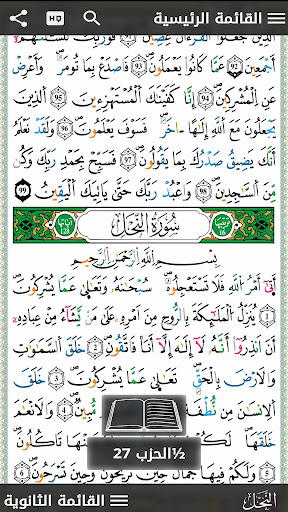 القائمة الرئيسية HQ
الَّذِينَ جَعَلُوا الْقُرْءَانَ عِضِينَ 91 فَوَرَبِّكَ لَنَسْـَٔلَنَّهُمْ
أَجْمَعِينَ 92 عَمَّا كَانُوا يَعْمَلُونَ 93 فَاصْدَعْ بِمَا تُؤْمَرُ وَأَعْرِضْ
عَنِ الْمُشْرِكِينَ 94 إِنَّا كَفَيْنَاكَ الْمُسْتَهْزِءِينَ 95 الَّذِينَ
يَجْعَلُونَ مَعَ اللَّهِ إِلَٰهًا ءَاخَرَ فَسَوْفَ يَعْلَمُونَ 96 وَلَقَدْ نَعْلَمُ
أَنَّكَ يَضِيقُ صَدْرُكَ بِمَا يَقُولُونَ 97 فَسَبِّحْ بِحَمْدِ رَبِّكَ وَكُن
مِّنَ السَّاجِدِينَ 98 وَاعْبُدْ رَبَّكَ حَتَّىٰ يَأْتِيَكَ الْيَقِينُ 99
سُورَةُ النَّحْلِ
128 16
بِسْمِ اللَّهِ الرَّحْمَٰنِ الرَّحِيمِ
أَتَىٰ أَمْرُ اللَّهِ فَلَا تَسْتَعْجِلُوهُ سُبْحَٰنَهُ وَتَعَالَىٰ عَمَّا يُشْرِكُونَ
1 يُنَزِّلُ الْمَلَٰئِكَةَ بِالرُّوحِ مِنْ أَمْرِهِ عَلَىٰ مَن يَشَاءُ مِنْ عِبَادِهِ
أَنْ أَنذِرُوا أَنَّهُ لَا إِلَٰهَ إِلَّا أَنَا فَاتَّقُونِ 2 خَلَقَ السَّمَٰوَٰتِ
وَالْأَرْضَ بِالْحَقِّ تَعَٰلَىٰ عَمَّا يُشْرِكُونَ 3 خَلَقَ
الْإِنسَٰنَ مِن نُّطْفَةٍ مُّبِينٌ 4 وَالْأَنْعَٰمَ
خَلَقَهَا تَأْكُلُونَ
½الحزب 27
5 وَلَكُمْ فِيهَا جَمَالٌ حِينَ تُرِيحُونَ وَحِينَ تَسْرَحُونَ 6
القائمة الثانوية النَّحْل